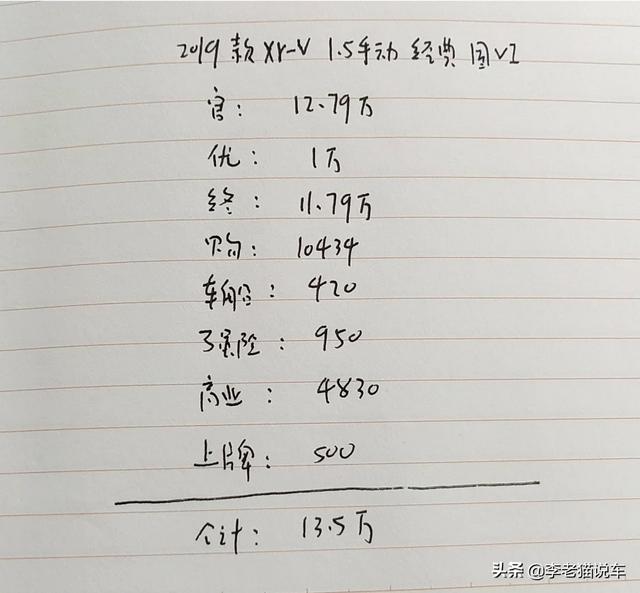 2019款 XR-V 1.5手动 经典 国VI
官: 12.79万
优: 1万
终: 11.79万
购: 10434
车船: 420
强险: 950
商业: 4830
上牌: 500
合计: 13.5万
头条 @李老猫说车